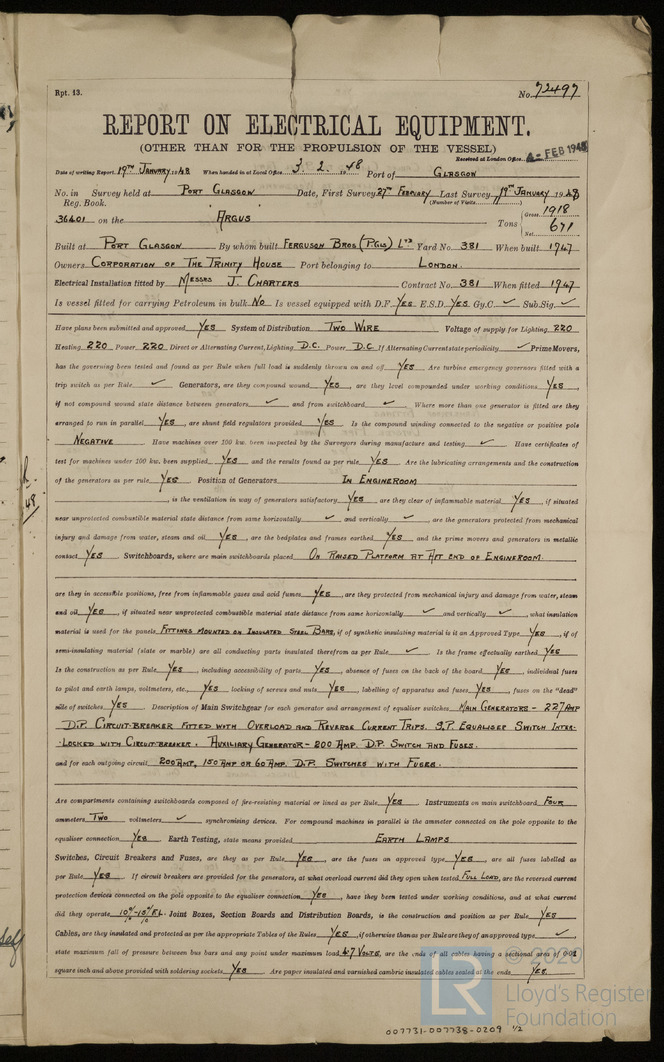 Rpt. 13.
No. 72497
REPORT ON ELECTRICAL EQUIPMENT.
(OTHER THAN FOR THE PROPULSION OF THE VESSEL)
Received at London Office 4-FEB 1948
Date of writing Report 19TH JANUARY 1948 When handed in at Local Office 3. 2. 1948 Port of GLASGOW
No. in Survey held at PORT GLASGOW Date, First Survey 27TH FEBRUARY Last Survey 19TH JANUARY 1948
Reg. Book. (Number of Visits)
36401 on the ARGUS Tons { Gross 1918 Net 671
Built at PORT GLASGOW By whom built FERGUSON BROS (P.GLS) LTD Yard No. 381 When built 1947
Owners CORPORATION OF THE TRINITY HOUSE Port belonging to LONDON
Electrical Installation fitted by MESSRS J. CHARTERS Contract No. 381 When fitted 1947
Is vessel fitted for carrying Petroleum in bulk NO Is vessel equipped with D.F. YES E.S.D. YES Gy.C ✓ Sub.Sig. ✓
Have plans been submitted and approved YES System of Distribution TWO WIRE Voltage of supply for Lighting 220
Heating 220 Power 220 Direct or Alternating Current, Lighting D.C. Power D.C If Alternating Current state periodicity ✓ Prime Movers,
has the governing been tested and found as per Rule when full load is suddenly thrown on and off YES Are turbine emergency governors fitted with a
trip switch as per Rule ✓ Generators, are they compound wound YES, are they level compounded under working conditions YES,
if not compound wound state distance between generators ✓ and from switchboard ✓ Where more than one generator is fitted are they
arranged to run in parallel YES, are shunt field regulators provided YES Is the compound winding connected to the negative or positive pole
NEGATIVE Have machines over 100 kw. been inspected by the Surveyors during manufacture and testing ✓ Have certificates of
test for machines under 100 kw. been supplied YES and the results found as per rule YES Are the lubricating arrangements and the construction
of the generators as per rule YES Position of Generators IN ENGINEROOM
, is the ventilation in way of generators satisfactory YES are they clear of inflammable material YES, if situated
near unprotected combustible material state distance from same horizontally ✓ and vertically ✓, are the generators protected from mechanical
injury and damage from water, steam and oil YES, are the bedplates and frames earthed YES and the prime movers and generators in metallic
contact YES Switchboards, where are main switchboards placed ON RAISED PLATFORM AT AFT END OF ENGINEROOM
are they in accessible positions, free from inflammable gases and acid fumes YES, are they protected from mechanical injury and damage from water, steam
and oil YES, if situated near unprotected combustible material state distance from same horizontally ✓ and vertically ✓, what insulation
material is used for the panels FITTINGS MOUNTED ON INSULATED STEEL BARS, if of synthetic insulating material is it an Approved Type YES, if of
semi-insulating material (slate or marble) are all conducting parts insulated therefrom as per Rule ✓ Is the frame effectually earthed YES
Is the construction as per Rule YES, including accessibility of parts YES, absence of fuses on the back of the board YES, individual fuses
to pilot and earth lamps, voltmeters, etc., YES locking of screws and nuts YES, labelling of apparatus and fuses YES, fuses on the "dead"
side of switches YES. Description of Main Switchgear for each generator and arrangement of equaliser switches MAIN GENERATORS - 227 AMP
D.P. CIRCUIT-BREAKER FITTED WITH OVERLOAD AND REVERSE CURRENT TRIPS. S.P. EQUALISER SWITCH INTER-
-LOCKED WITH CIRCUIT-BREAKER. AUXILIARY GENERATOR - 200 AMP. D.P. SWITCH AND FUSES.
and for each outgoing circuit 200 AMP, 150 AMP OR 60 AMP. D.P. SWITCHES WITH FUSES.
Are compartments containing switchboards composed of fire-resisting material or lined as per Rule YES Instruments on main switchboard FOUR
ammeters TWO voltmeters ✓ synchronising devices. For compound machines in parallel is the ammeter connected on the pole opposite to the
equaliser connection YES Earth Testing, state means provided EARTH LAMPS
Switches, Circuit Breakers and Fuses, are they as per Rule YES, are the fuses an approved type YES, are all fuses labelled as
per Rule YES If circuit breakers are provided for the generators, at what overload current did they open when tested FULL LOAD, are the reversed current
protection devices connected on the pole opposite to the equaliser connection YES, have they been tested under working conditions, and at what current
did they operate 10%-15% F.L. Joint Boxes, Section Boards and Distribution Boards, is the construction and position as per Rule YES
Cables, are they insulated and protected as per the appropriate Tables of the Rules YES, if otherwise than as per Rule are they of an approved type ✓,
state maximum fall of pressure between bus bars and any point under maximum load 4.7 VOLTS, are the ends of all cables having a sectional area of 0·01
square inch and above provided with soldering sockets YES Are paper insulated and varnished cambric insulated cables sealed at the ends YES
© 2020
LR Lloyd's Register
Foundation
007731-007738-0209 1/2
48
self